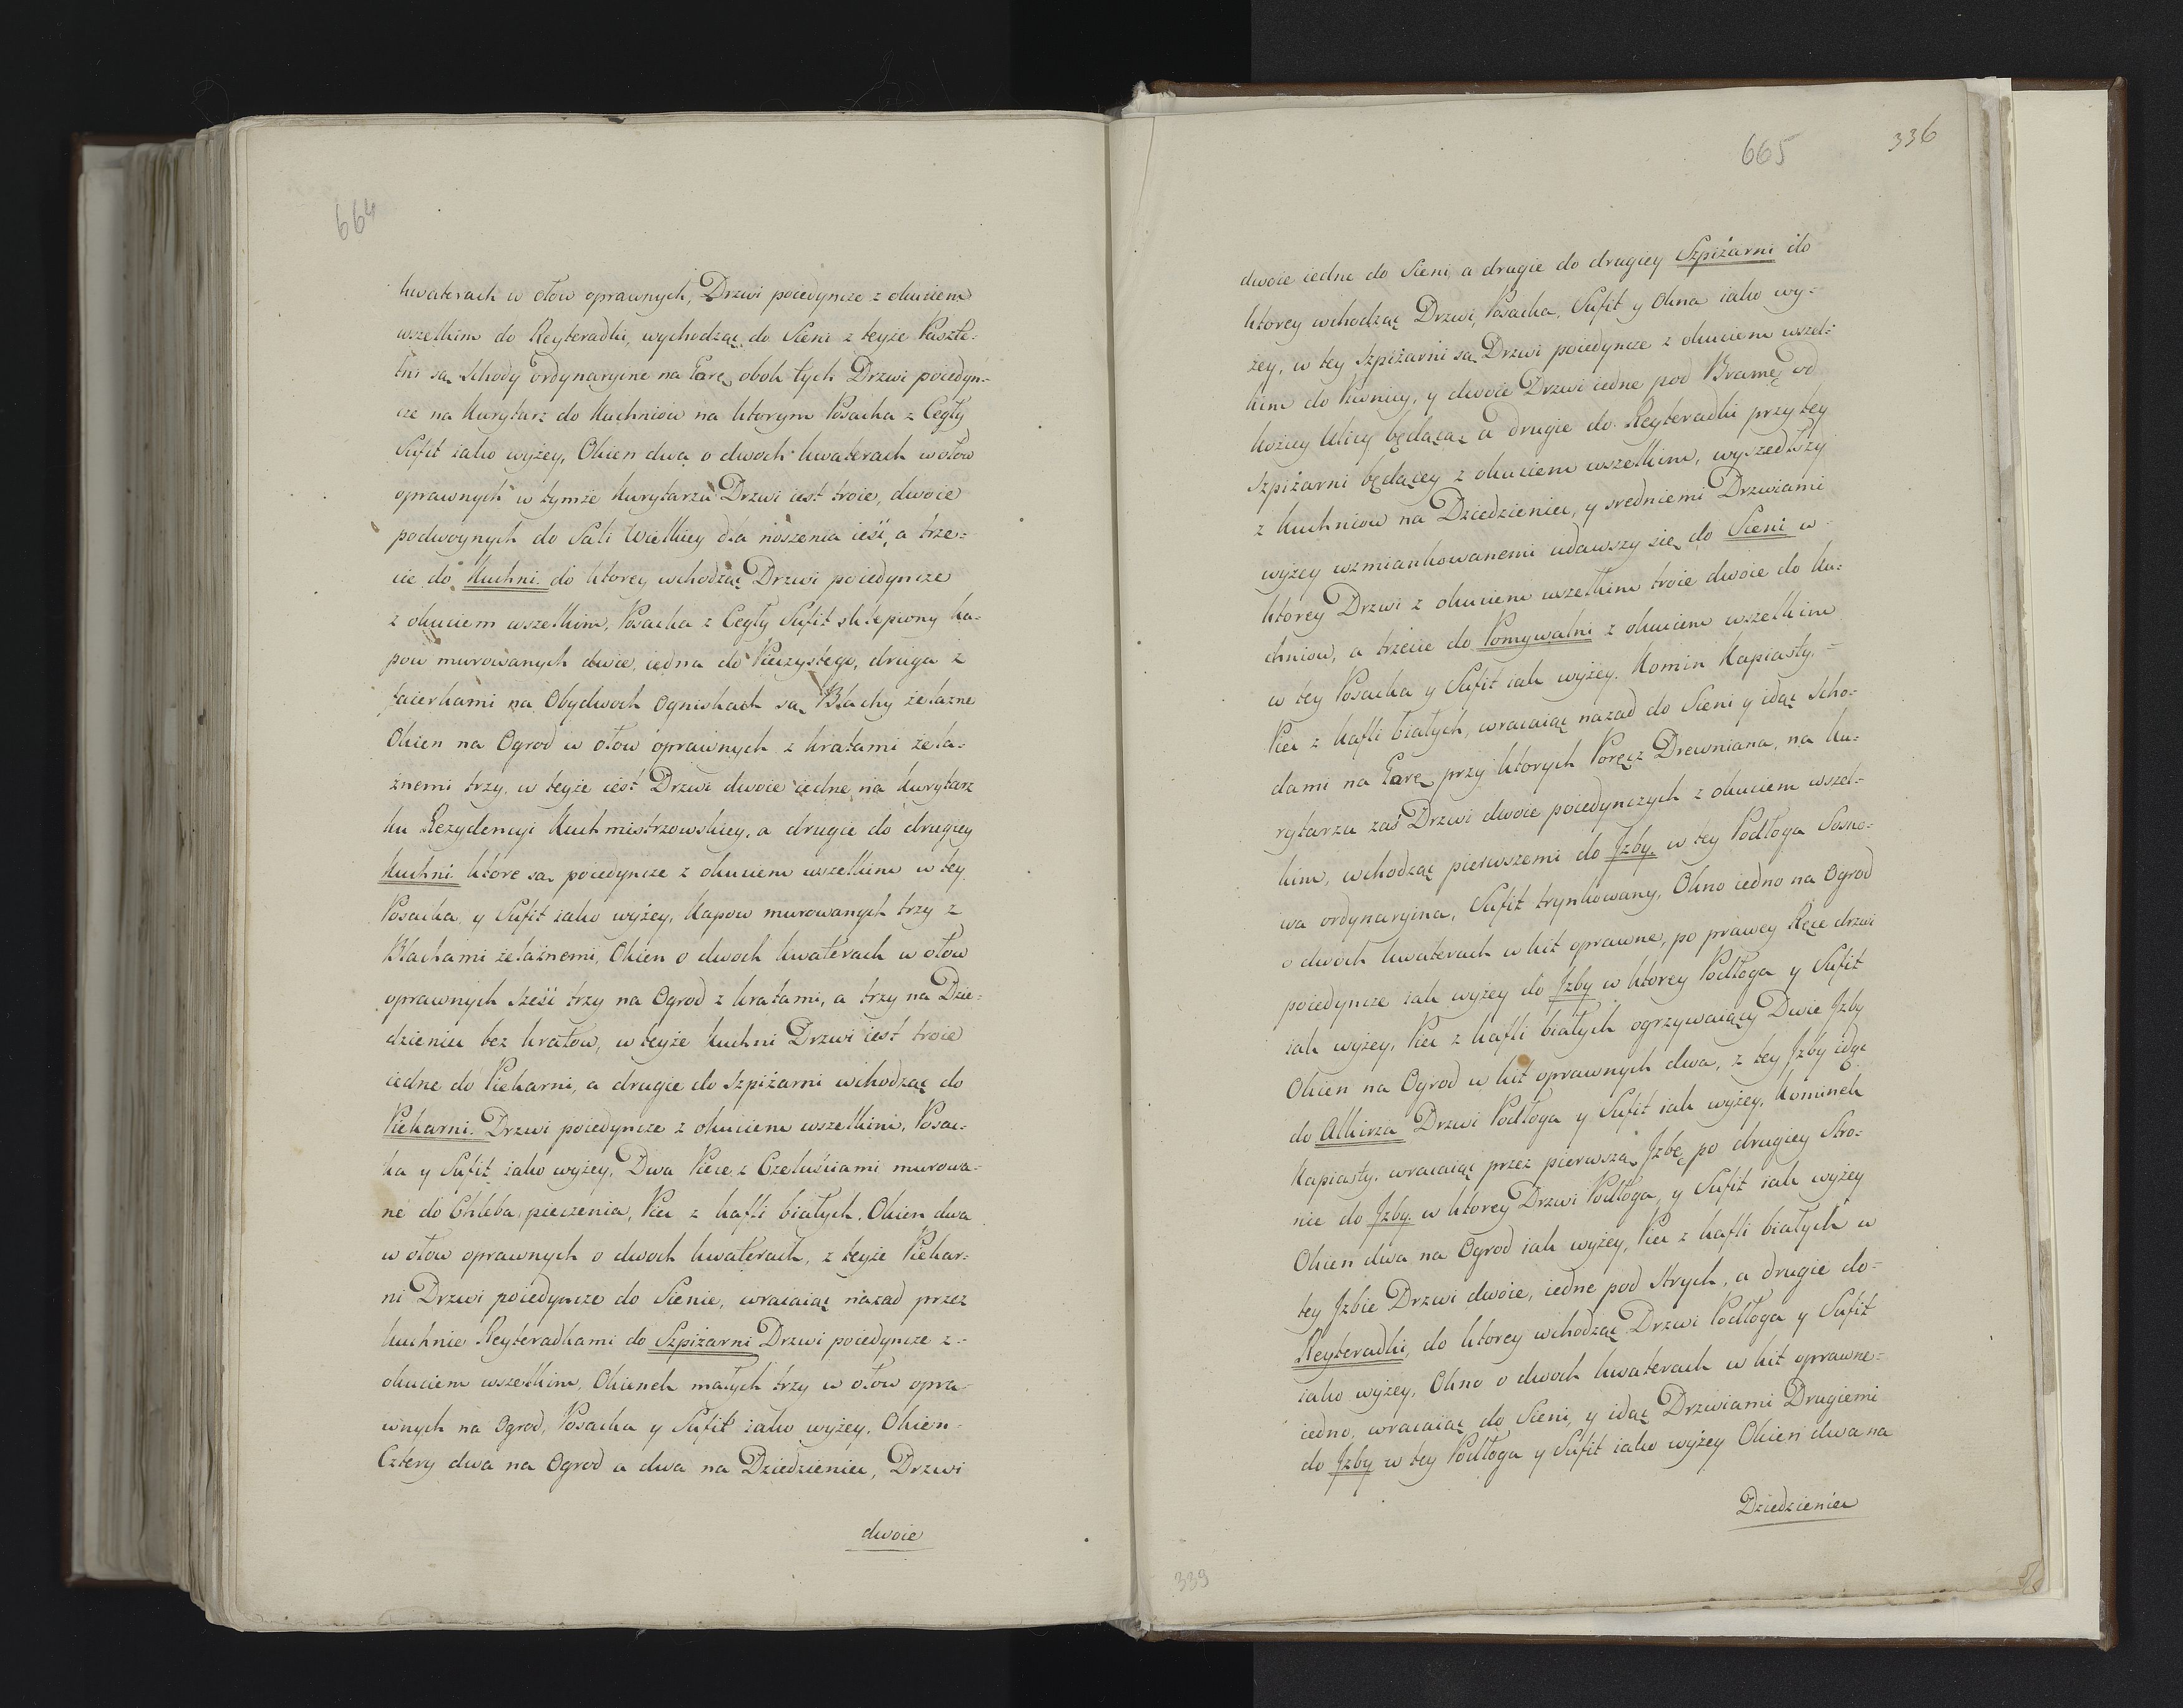 664
kwaterach w ołow oprawnych, Drzwi poiedyncze z okuciem
wszelkim do Reyteradki, wychodząc do Sieni z teyże Paszte-
tni są Schody ordynaryine na Gurę obok tych Drzwi poiedyn-
cze na Kurytarz do Kuchniow na ktorym Posacka z Cegły
Sufit iako wyżey, Okien dwa o dwoch kwaterach w ołow
oprawnych w tymże Kurytarzu Drzwi iest troie, dwoie
podwoynych do Sali Wielkiey dla noszenia ieść, a trze-
cie do Kuchni do ktorey wchodząc Drzwi poiedyncze
z okuciem wszelkim, Posacka z Cegły Sufit sklepiony Ka-
pow murowanych dwie, iedna do Pieczystego, druga z
facerkami na Obydwoch Ogniskach są Blachy żelazne
Okien na Ogrod w ołow oprawnych z kratami żela-
znemi trzy, w teyże iest Drzwi dwoie iedne na Kurytarz
ku Rezydencyi Kuchmistrzowskiey, a drugie do drugiey
Kuchni ktore są poiedyncze z okuciem wszelkim w tey
Posacka y Sufit iako wyżey, Kapow murowanych trzy z
Blachami żelaznemi, Okien o dwoch kwaterach w ołow
oprawnych sześć trzy na Ogrod z kratami, a trzy na Dzie-
dzieniec bez kratow, w teyże Kuchni Drzwi iest troie
iedne do Piekarni, a drugie do Szpiżarni wchodząc do
Piekarni. Drzwi poiedyncze z okuciem wszelkim, Posac-
ka y Sufit iako wyżey, Dwa Piece z Czeluściami murowa-
ne do Chleba pieczenia, Piec z kafli białych. Okien dwa
w ołow oprawnych o dwoch kwaterach, z teyże Piekar-
ni Drzwi poiedyncze do Sienie, wracaiąc nazad przez
kuchnie Reyteradkami do Szpiżarni Drzwi poiedyncze z-
okuciem wszelkim, Okienek małych trzy w ołow opra-
wnych na Ogrod, Posacka y Sufit iako wyżey, Okien-
Cztery dwa na Ogrod a dwa na Dziedzieniec, Drzwi
dwoie
665
336
dwoie iedne do Sieni, a drugie do drugiey Szpiżarni do
ktorey wchodząc Drzwi, Posacka, Sufit y Okna iako wy-
żey, w tey Szpiżarni są Drzwi poiedyncze z okuciem wszel-
kim do Piwnicy, y dwoie Drzwi iedne pod Bramę od
Koziey Ulicy będącą a drugie do Reyteradki przy tey
Szpiżarni będącey z okuciem wszelkim, wyszedłszy
z Kuchniow na Dziedzieniec, y sredniemi Drzwiami
wyżey wzmiankowanemi udawszy się do Sieni w
ktorey Drzwi z okuciem wszelkim troie dwoie do Ku-
chniow, a trzecie do Pomywalni z okuciem wszelkim
w tey Posacka y Sufit iak wyżey. Komin Kapiasty,
Piec z kafli białych, wracaiąc nazad do Sieni y idąc Scho-
dami na Gurę przy ktorych Poręcz Drewniana, na Ku-
rytarzu zaś Drzwi dwoie poiedynczych z okuciem wszel-
kim, wchodząc pierwszemi do Jzby, w tey Podłoga Sosno-
wa ordynaryina, Sufit trynkowany, Okno iedno na Ogrod
o dwoch kwaterach w kit oprawne, po prawey Ręce drzwi
poiedyncze iak wyżey do Jzby w ktorey Podłoga y Sufit
iak wyżey, Piec z kafli białych ogrzywaiący Dwie Jzby
Okien na Ogrod w kit oprawnych dwa, z tey Jzby idąc
do Alkierza Drzwi Podłoga y Sufit iak wyżey, Kominek
Kapiasty, wracaiąc przez pierwszą Jzbę po drugiey Stro-
nie do Jzby, w ktorey Drzwi Podłoga, y Sufit iak wyżey
Okien dwa na Ogrod iak wyżey, Piec z kafli białych w
tey Jzbie Drzwi dwoie, iedne pod Strych, a drugie do-
Reyteradki, do ktorey wchodząc Drzwi Podłoga y Sufit
iako wyżey, Okno o dwoch kwaterach w kit oprawne-
iedno, wracaiąc do Sieni, y idąc Drzwiami Drugiemi
do Jzby w tey Podłoga y Sufit iako wyżey Okien dwa na
Dziedzieniec
339